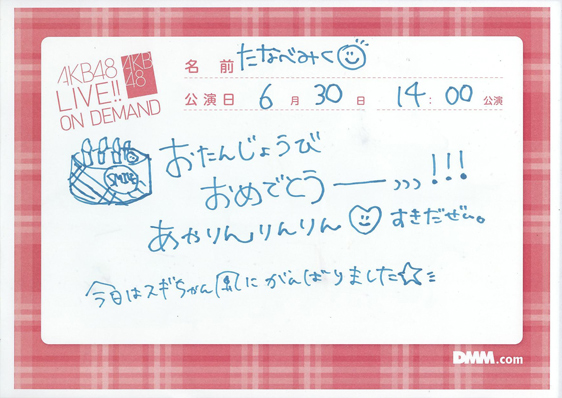 AKB48
LIVE!!
ON DEMAND
AKB
48
名 前 たなべみく
公演日 6月30日 14:00 公演
SMILE
おたんじょうび
おめでとうー›››!!!
あやりんりんりん♡すきだぜぃ。
今日はスギちゃん風にがんばりました☆
DMM.com